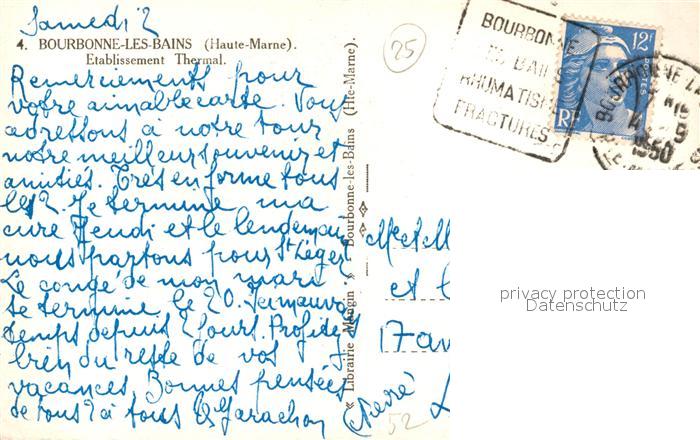 Samedi 2
4. BOURBONNE-LES-BAINS (Haute-Marne).
Etablissement Thermal.
Remerciements pour
votre aimable carte. Vous
adressons à notre tour
notre meilleur souvenir et
amitiés. Très en forme tous
les 2. Je termine ma
cure Jeudi et le lendemain
nous partons pour St Léger
Le congé de mon mari
se termine le 20. mauvais
temps depuis 2 jours. Profitez
bien du reste de vos
vacances. Bonnes pensées
de tous 2 à tous
« Librairie Maugin » Bourbonne-les-Bains (Hte-Marne).
25
BOURBONNE
LES BAINS
RHUMATISMES
FRACTURES
12F
POSTES
RF
BOURBONNE
1950
M et M
et
17 av
(Nièvre)
52
privacy protection
Datenschutz